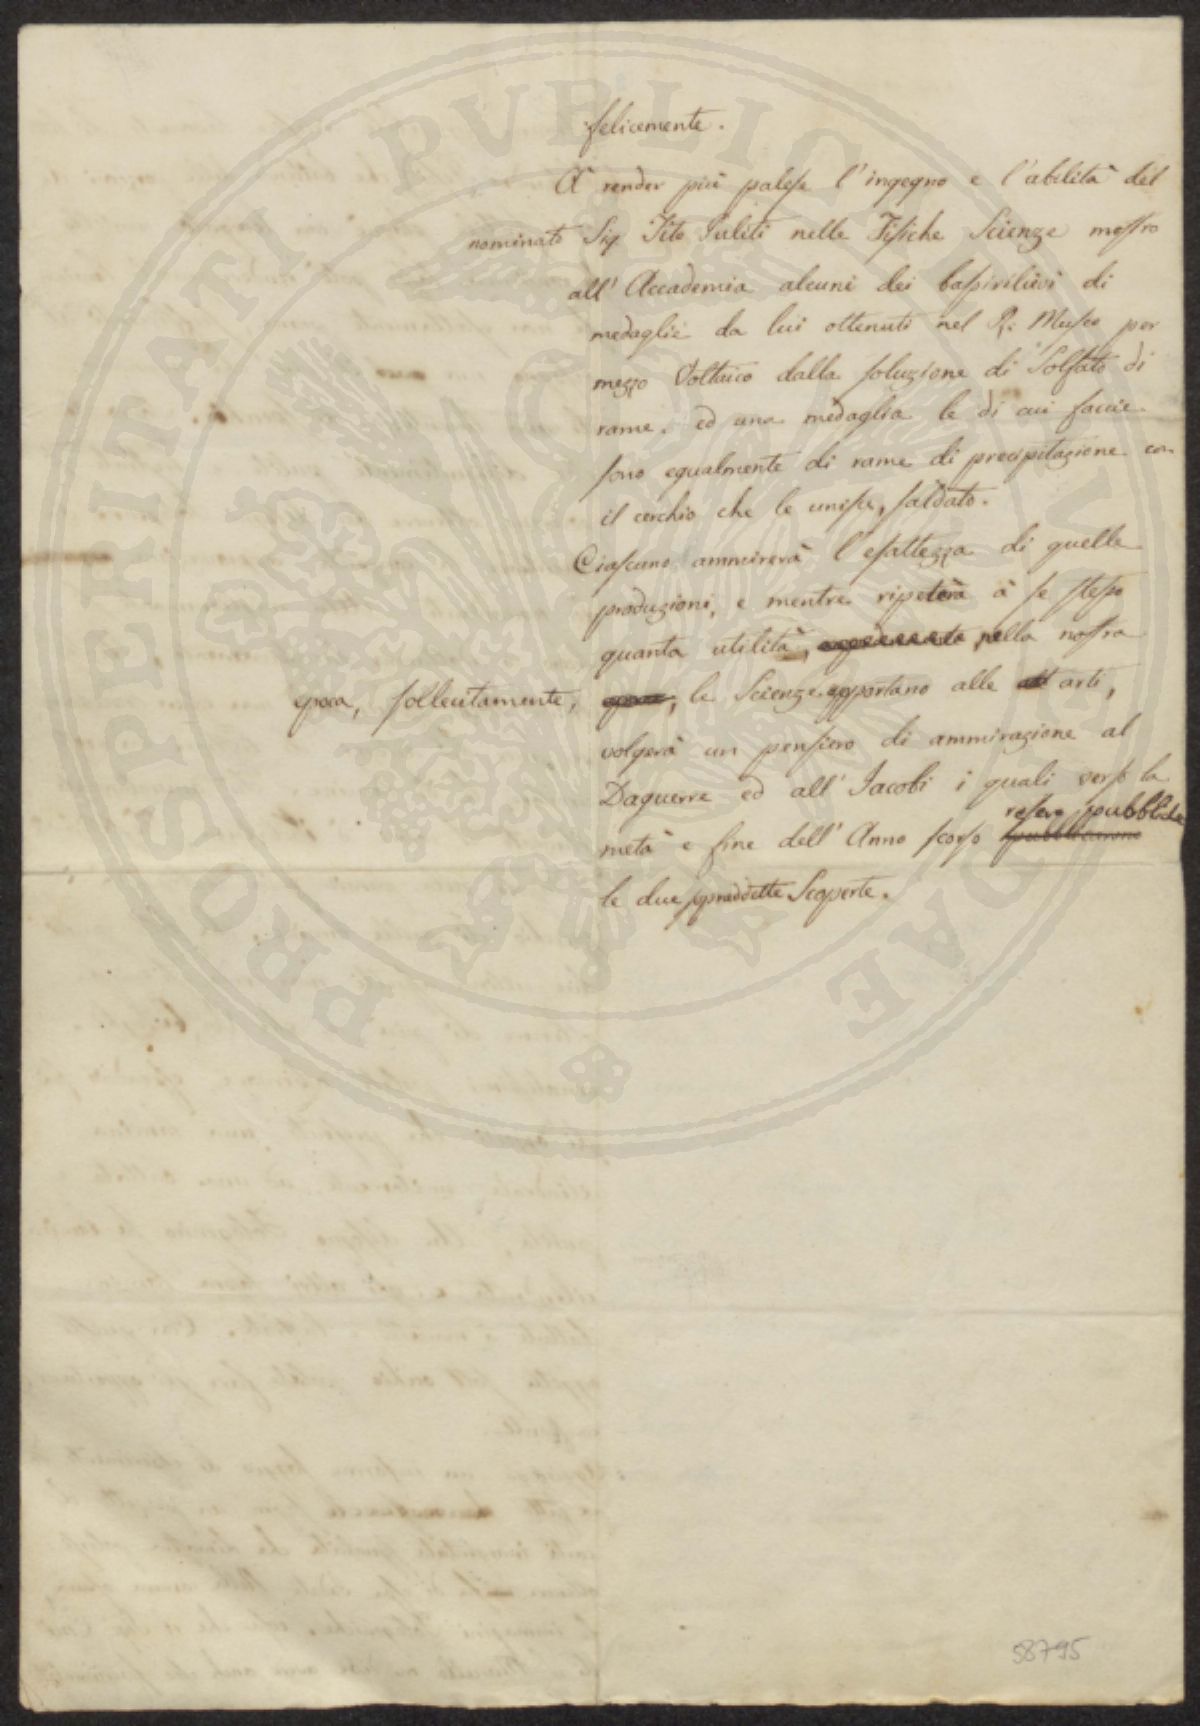 felicemente.
A render più palese l'ingegno e l'abilità del
nominato Sig Tito Puliti nelle Fisiche Scienze mostro
all' Accademia alcuni dei bassirilievi di
medaglie da lui ottenuti nel R: Museo per
mezzo Voltaico dalla soluzione di Solfato di
rame. ed una medaglia le di cui faccie
sono egualmente di rame di precipitazione con
il cerchio che le unisce, saldato.
Ciascuno ammirerà l'esattezza di quelle
produzioni, e mentre ripeterà à se stesso
quanta utilità, nella nostra
epoca, sollecitamente, epoca, le Scienze apportano alle arti,
volgerà un pensiero di ammirazione al
Daguerre ed all' Jacobi i quali verso la
metà e fine dell' Anno scorso pubblicarono resero pubbliche
le due predette Scoperte.
58795
PROSPERITATI PVBLICAE AVGENDAE